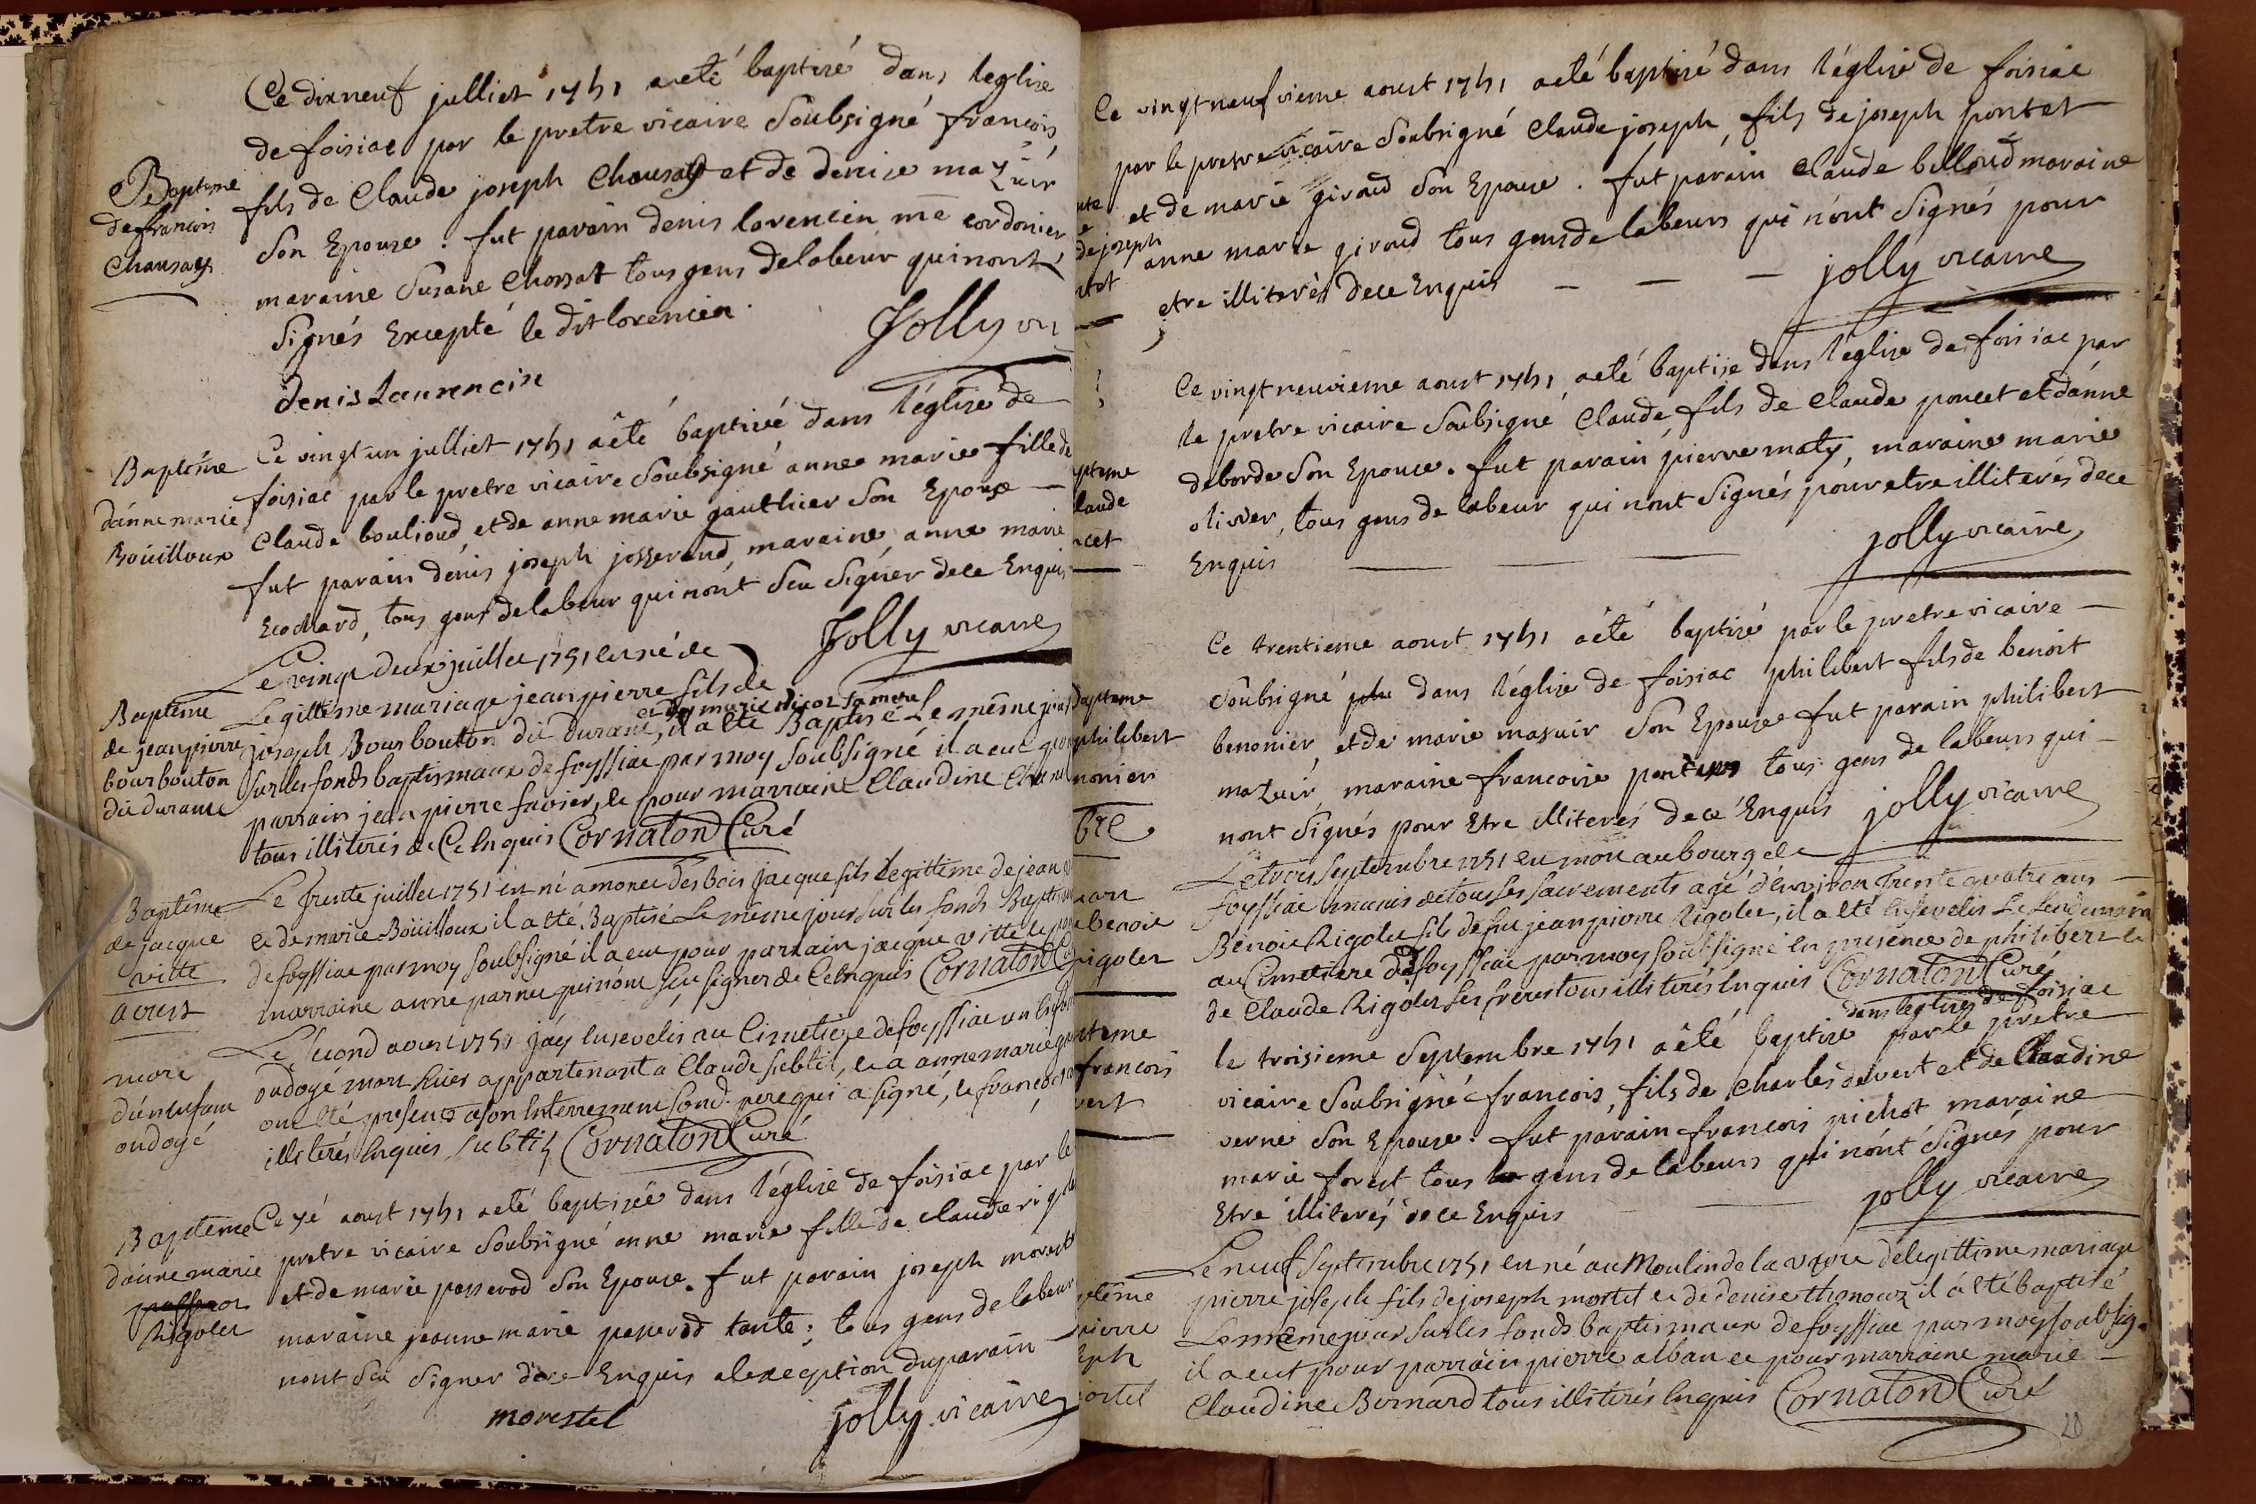 Ce dixneuf julliet 1751 aeté baptisé dans leglise
de foisiac par le pretre vicaire Soubsigné francois,
fils de Claude joseph Chausat et de denise mazuir
Son Epouse. fut parain denis lorencin me cordonier
maraine Susane Chossat tous gens de labeur qui nont
Signés Excepté le dit lorencin.
Jolly vi
denis Laurencin
Bapteme
de francois
Chausat
Ce vingt un julliet 1751 a èté baptisée dans l'église de
foisiac par le pretre vicaire Soubsigné anne marie fille de
Claude boulioud, et de anne marie gauthier Son Epouse
fut parain denis joseph josserand, maraine anne marie
Ecochard, tous gens de labeur qui nont Seu Signér de ce Enquis
Jolly vicaire
Baptême
d'anne marie
Boüilloux
Le vingt deux juillet 1751 est né de
Legittime mariage jean pierre fils de
joseph Bourbouton dit durand, et de marie nicol sa mere il a eté Baptisé Le même jour
sur les fonds baptismaux de foyssiac par moy soubsigné il a eut pour
parrain jean pierre favier, et pour marraine Claudine
tous illiterés de Ce Enquis Cornaton Curé
Baptême
de jean pierre
bourbouton
dit durand
Le trente juillet 1751 est né a morel des bois jacque fils Legittime de jean
et de marie Boüilloux il a eté Baptisé Le même jour sur les fonds
de foyssiac par moy soubsigné il a eut pour parrain jacque vitte et pour
marraine anne parnet qui n'ont sçu signer de Ce Enquis Cornaton
Baptême
de jacque
vitte
aoust
Le second aoust 1751 j'ay Ensevelis au Cimetiere de foyssiac un Enfant
ondoyé mort hier appartenant a Claude subtil, et a anne marie
ont eté presents a son Enterrement son d. pere qui a signé, et françois
illiterés Enquis Subtil Cornaton Curé
mort
d'un enfant
ondoyé
Ce 7é aoust 1751 aeté baptisée dans l'église de foisiac par le
pretre vicaire Soubsigné anne marie fille de claude rigolet
et de marie passerod Son Epouse. fut parain joseph morestel
maraine jeanne marie passerod tante; tous gens de labeur
nont Seu Signer de ce Enquis alexception du parain
morestel
jolly vicaire
Bapteme
d'anne marie
Rigolet
Ce vingt neufvieme aoust 1751 aeté baptisé dans l'église de foisiac
par le pretre vicaire Soubsigné Claude joseph, fils de joseph pontet
et de marie giroud Son Epouse. fut parain Claude belloud maraine
anne marie giroud tous gens de labeurs qui n'ont Signés pour
etre illiterés de ce Enquis jolly vicaire
de joseph
Ce vingt neuvieme aoust 1751 aeté baptisé dans l'église de foisiac par
le pretre vicaire Soubsigné Claude, fils de Claude poncet et d'anne
deborde Son Epouse. fut parain pierre maty, maraine marie
olivier, tous gens de labeur qui nont Signés pour etre illiterés de ce
Enquis jolly vicaire
Ce trentieme aoust 1751 a èté baptisé par le pretre vicaire
Soubsigné dans l'église de foisiac philibert fils de benoit
benonier, et de marie masuir Son Epouse fut parain philibert
mazuir, maraine francoise tous gens de labeurs qui
nont Signés pour Etre illiterés de ce Enquis jolly vicaire
philibert
Le trois septembre 1751 est mort au bourg de
foyssiac munis de tous ses sacrements agé d'environ trente quatre ans
Benoit Rigolet fils de feu jean pierre Rigolet, il a eté Ensevelis Le lendemain
au Cimetiere de foyssiac par moy soubsigné en presence de philibert et
de Claude Rigolet ses freres tous illiterés Enquis Cornaton Curé
benoit
rigolet
dans leglise de foisiac
le troisieme Septembre 1751 a èté baptise par le pretre
vicaire Soubsigné francois, fils de Charles devert et de Claudine
verne Son Epouse. fut parain francois pichot maraine
marie forest tous gens de labeurs qui n'ont Signés pour
Etre illiterés de ce Enquis jolly vicaire
francois
Le neuf septembre 1751 est né au Moulin de la vavre de legittime mariage
pierre joseph fils de joseph mortel et de denise thenoux il a eté baptisé
Le même jour sur les fonds baptismaux de foyssiac par moy soubsig.
il a eut pour parrain pierre alban et pour marraine marie
Claudine Bernard tous illiterés Enquis Cornaton Curé
20